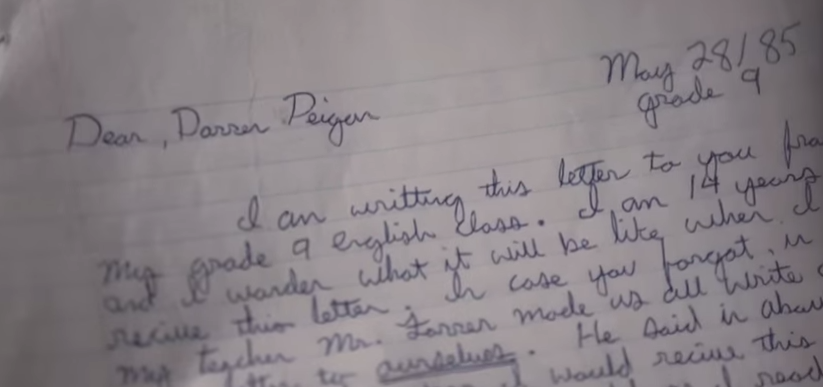 May 28/85
grade 9
Dear, Darren Peigan
I am writting this letter to you
my grade 9 english class. I am 14 years
and I wander what it will be like when I
recive this letter. In case you forgot, in
my teacher Mr. Farrer made us all write
to ourselves. He said in
would recive this